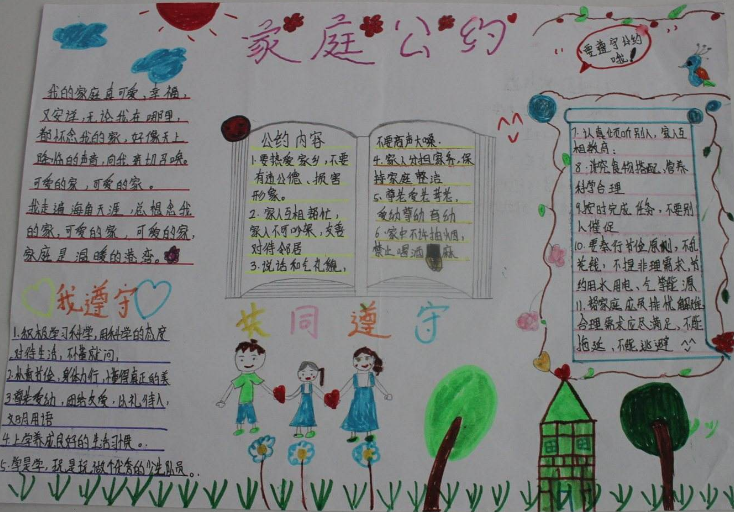 家庭公约
要遵守公约
啦！
我的家庭真可爱，幸福，
又安详，无论我在哪里，
都怀念我的家，好像天上
降临的声音，向我亲切召唤。
可爱的家，可爱的家。
我走遍海角天涯，总想念我
的家，可爱的家，可爱的家，
家庭是温暖的港湾。
公约内容
1.要热爱家乡，不要
有违公德、损害
形象。
2.家人互相帮忙，
家人不可吵架，友善
对待邻居
3.说话和气礼貌，
不要高声大嚷.
4.家人分担家务，保
持家庭整洁
5.尊老爱老菩老，
爱幼尊幼
6.家中不许抽烟，
禁止喝酒
7.认真倾听别人，家人互
相教育；
8.注意食物搭配，营养
科管合理
9.按时完成任务，不要别
人催促
10.要奉行节俭原则，不乱
花钱，不提非理需求，节
约用水、用电、气等能源
11.帮家庭应尽排忧解难
合理需求应尽满足，不能
拖延，不能逃避
我遵守
1.积极学习科学，用科学的态度
对待生活，不懂就问，
2.朴素节俭，身体力行，懂得真正的美
3.尊老爱幼，团结友爱，以礼待人，
文明用语
4.上学养成良好的生活习惯。
5.学是学，玩是玩，做个优秀的少先队员。
共同遵守